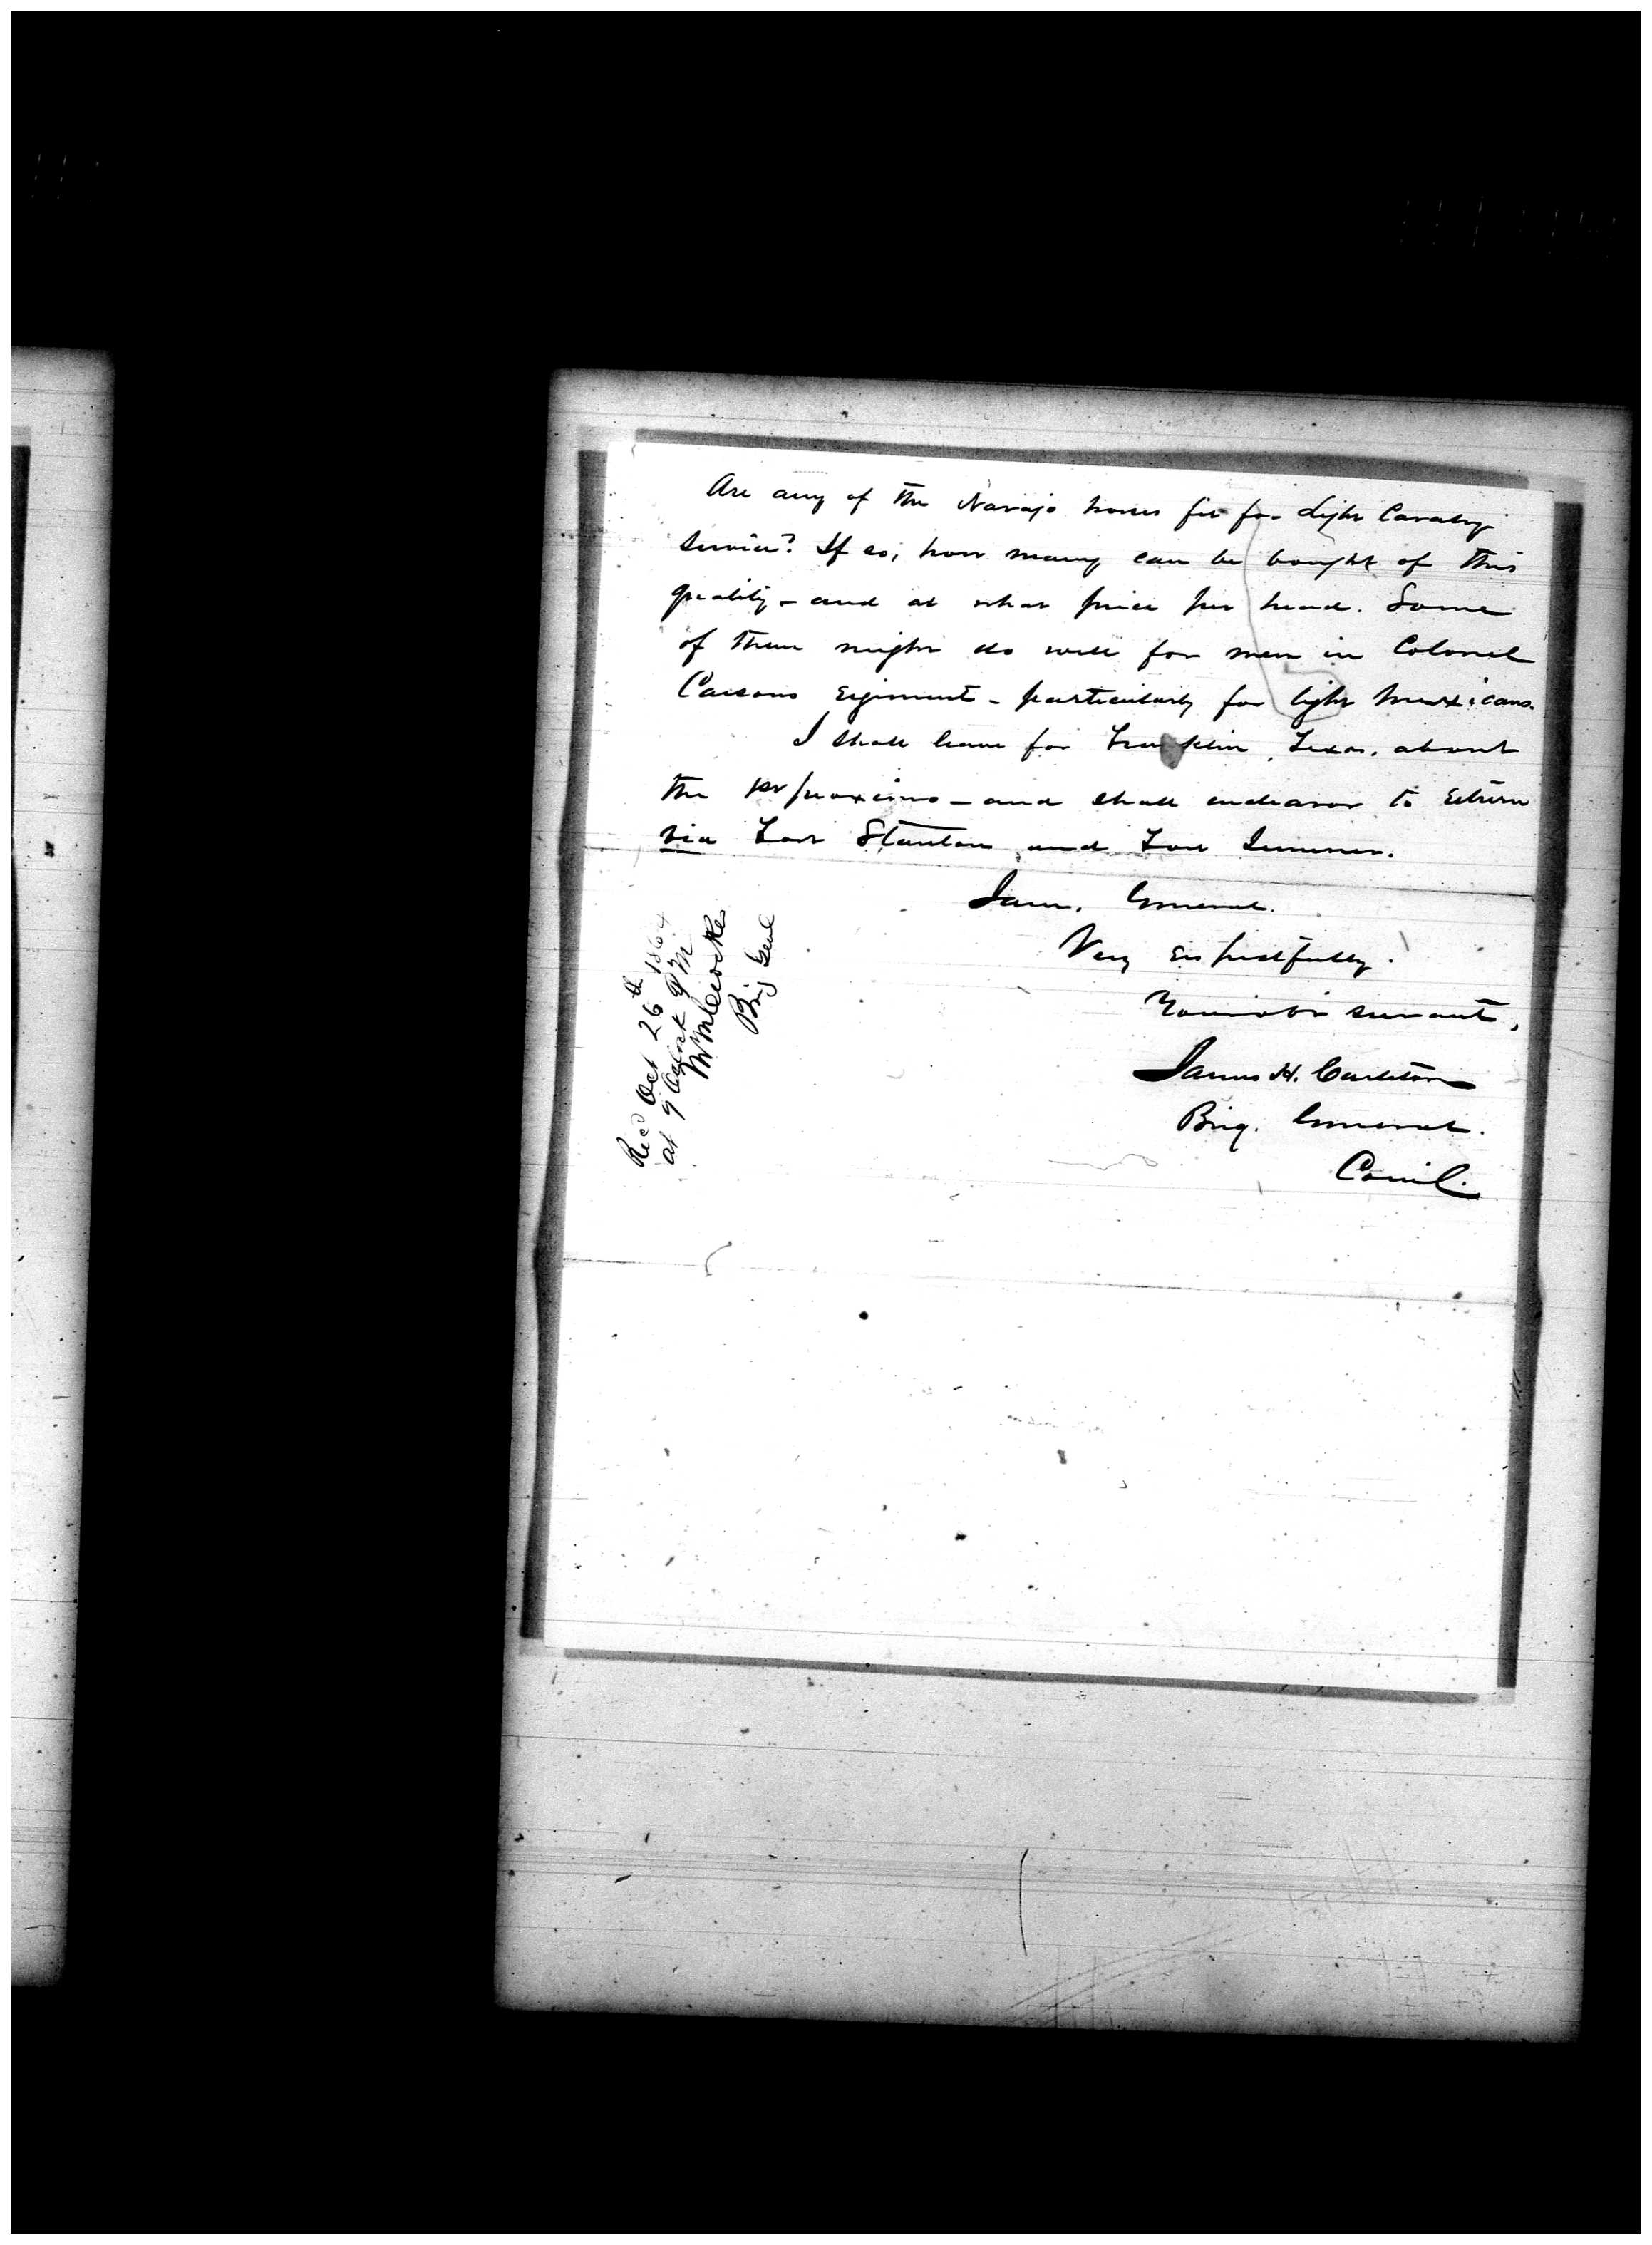 Are any of the Navajo horses fit for Light Cavalry
service? If so, how many can be bought of this
quality - and at what price per head. Some
of them might do well for men in Colonel
Carsons regiment - particularly for light Mexicans.
I shall leave for Franklin, Texas, about
the 1st proximo - and shall endeavor to return
via Fort Stanton and Fort Sumner.
I am, General.
Very respectfully.
Your obt servant,
James H. Carleton
Brig. General.
Comd.
Rec Oct 26th 1864
at 9 Oclock PM
M M Crocker
Brig Genl